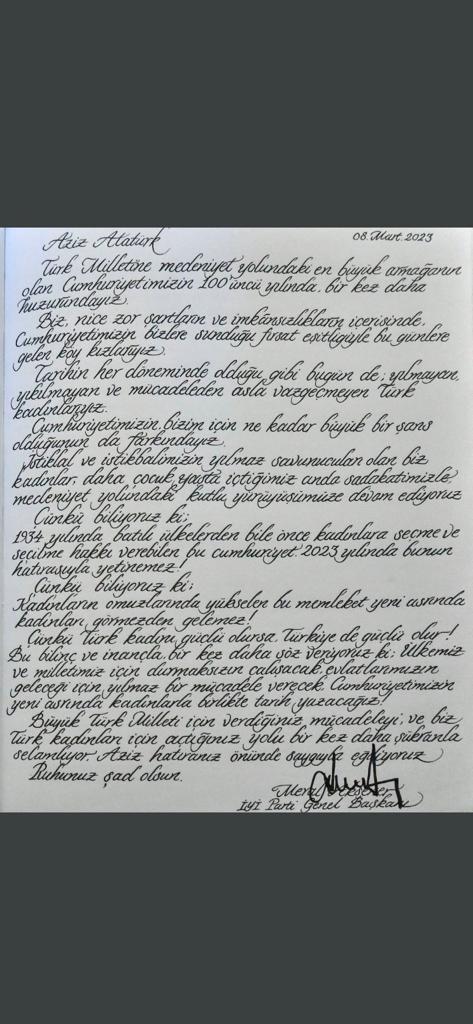 Aziz Atatürk
08.Mart.2023
Türk Milletine medeniyet yolundaki en büyük armağanın
olan Cumhuriyetimizin 100'üncü yılında, bir kez daha
huzurundayız.
Biz, nice zor şartların ve imkânsızlıkların içerisinde,
Cumhuriyetimizin bizlere sunduğu fırsat eşitliğiyle bu günlere
gelen köy kızlarıyız.
Tarihin her döneminde olduğu gibi bugün de; yılmayan,
yıkılmayan ve mücadeleden asla vazgeçmeyen Türk
kadınlarıyız.
Cumhuriyetimizin, bizim için ne kadar büyük bir şans
olduğunun da farkındayız.
İstiklal ve istikbalimizin yılmaz savunucuları olan biz
kadınlar, daha çocuk yaşta içtiğimiz anda sadakatimizle,
medeniyet yolundaki kutlu yürüyüşümüze devam ediyoruz
Çünkü biliyoruz ki;
1934 yılında, batılı ülkelerden bile önce kadınlara seçme ve
seçilme hakkı verebilen bu cumhuriyet, 2023 yılında bunun
hatırasıyla yetinemez!
Çünkü biliyoruz ki;
Kadınların omuzlarında yükselen bu memleket yeni asrında
kadınları, görmezden gelemez!
Çünkü Türk kadını güçlü olursa, Türkiye de güçlü olur!
Bu bilinç ve inançla, bir kez daha söz veriyoruz ki; Ülkemiz
ve milletimiz için durmaksızın çalışacak, evlatlarımızın
geleceği için yılmaz bir mücadele verecek, Cumhuriyetimizin
yeni asrında kadınlarla birlikte tarih yazacağız!
Büyük Türk Milleti için verdiğiniz mücadeleyi, ve biz
Türk kadınları için açtığınız yolu bir kez daha şükranla
selamlıyor, Aziz hatıranız önünde saygıyla eğiliyoruz
Ruhunuz şad olsun.
Meral Akşener
İYİ Parti Genel Başkanı